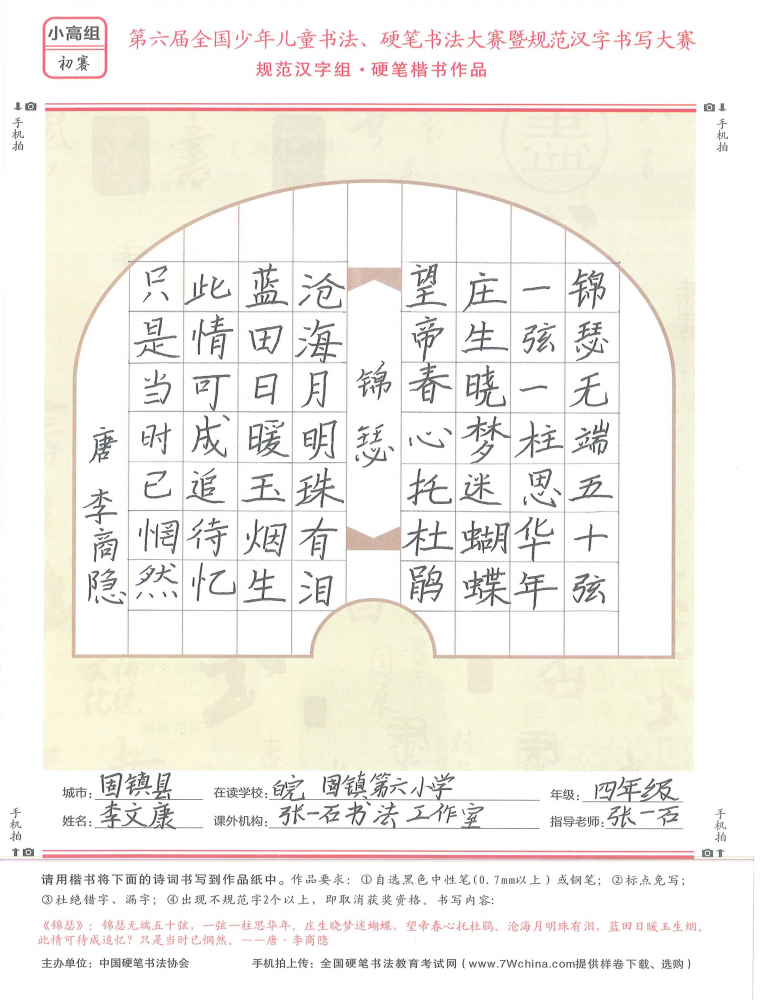 小高组
初赛
第六届全国少年儿童书法、硬笔书法大赛暨规范汉字书写大赛
规范汉字组·硬笔楷书作品
手机拍
手机拍
锦瑟无端五十弦
一弦一柱思华年
庄生晓梦迷蝴蝶
望帝春心托杜鹃
锦瑟
沧海月明珠有泪
蓝田日暖玉生烟
此情可待成追忆
只是当时已惘然
唐 李商隐
城市：固镇县 在读学校：皖 固镇第六小学 年级：四年级
姓名：李文康 课外机构：张一石书法工作室 指导老师：张一石
手机拍
手机拍
请用楷书将下面的诗词书写到作品纸中。作品要求：①自选黑色中性笔(0.7mm以上)或钢笔；②标点免写；
③杜绝错字、漏字；④出现不规范字2个以上，即取消获奖资格。书写内容：
《锦瑟》：锦瑟无端五十弦，一弦一柱思华年。庄生晓梦迷蝴蝶，望帝春心托杜鹃。沧海月明珠有泪，蓝田日暖玉生烟。
此情可待成追忆？只是当时已惘然。——唐·李商隐
主办单位：中国硬笔书法协会 手机拍上传：全国硬笔书法教育考试网（www.7Wchina.com提供样卷下载、选购）